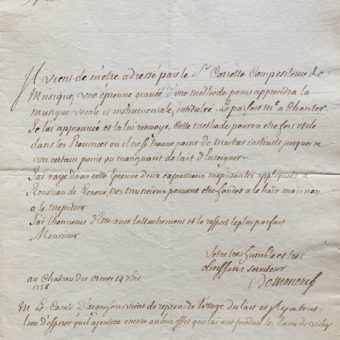 Il vient de m'etre adressé par le Sr. Corrette Compositeur de
Musique, une épreuve gravée d'une méthode pour apprendre la
musique vocale et instrumentale, intitulée Le parfait Me. a Chanter
Je l'ai approuvée et la lui renvoye. Cette methode pourra être fort utile
dans les Provinces où il ne se trouve point de maitres instruits jusques a
un certain point ou manquant de l'art d'enseigner.
J'ai rayé dans cette Epreuve deux expressions meprisantes appliquées a
Rousseau de Geneve nos musiciens peuvent être fondés a le haïr mais non
a le mepriser
J'ai l'honneur d'Etre avec l'attachement et le respect le plus parfait
Monsieur
Votre tres humble et tres
obeissant serviteur
Demoncrif
au Chateau des ormes 14
1758
M. Le Comte D'argenson vient de reprendre l'usage du lait et il y a tout
lieu d'esperer qu'il ajoutera encore au bon effet que lui ont produit les Eaux de vichy